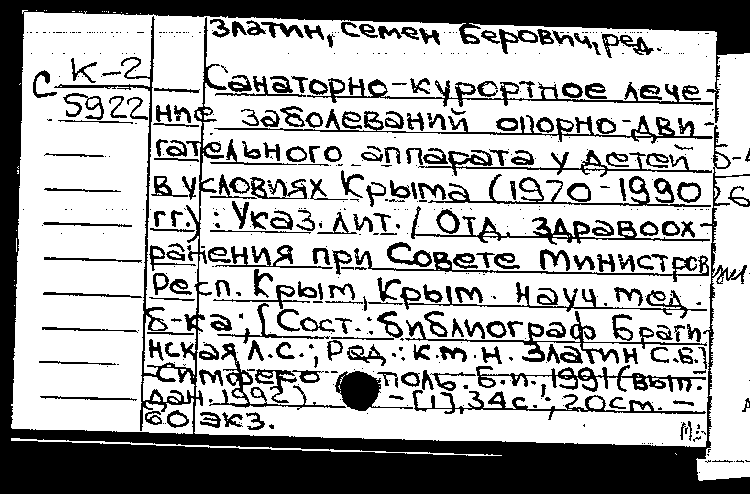 Златин, Семен Берович, ред.
К-2
С
5922
Санаторно-курортное лече-
ние заболеваний опорно-дви-
гательного аппарата у детей
в условиях Крыма (1970-1990
гг.) : Указ. лит. / Отд. здравоох-
ранения при Совете Министров
Респ. Крым, Крым. науч. мед.
б-ка; [Сост.: библиограф Браги-
нская Л.С.; Ред.: к.м.н. Златин С.Б.]
-Симферополь. Б.и., 1991 (вып.
дан. 1992). - [1], 34 с.; 20 см. -
60 экз.